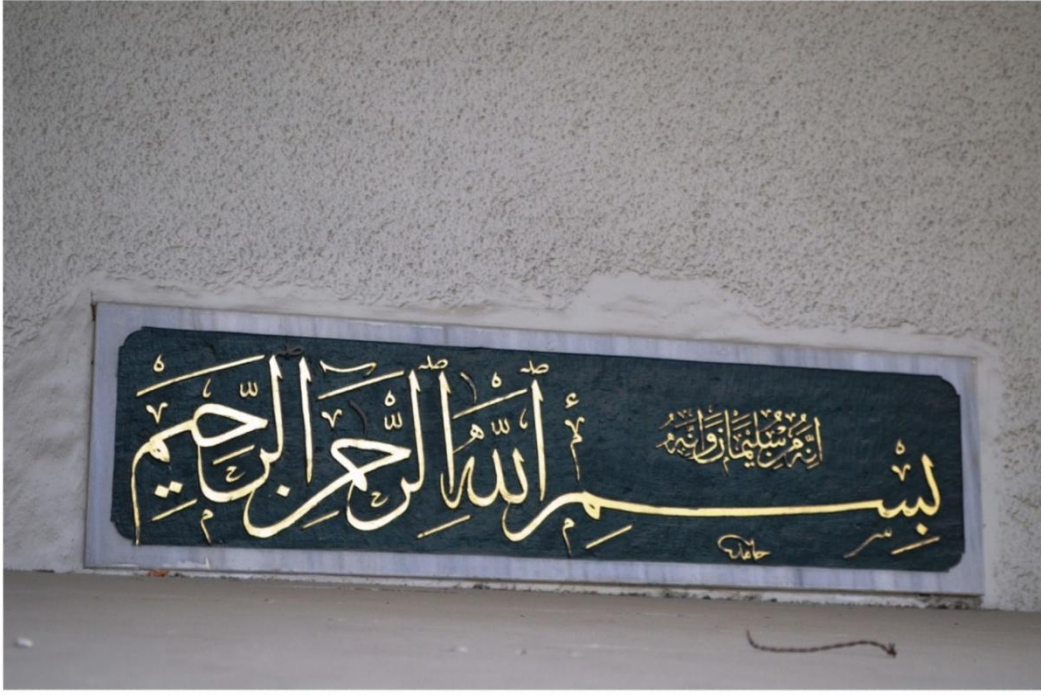 إنه من سليمان وإنه
بسم الله الرحمن الرحيم
حامد